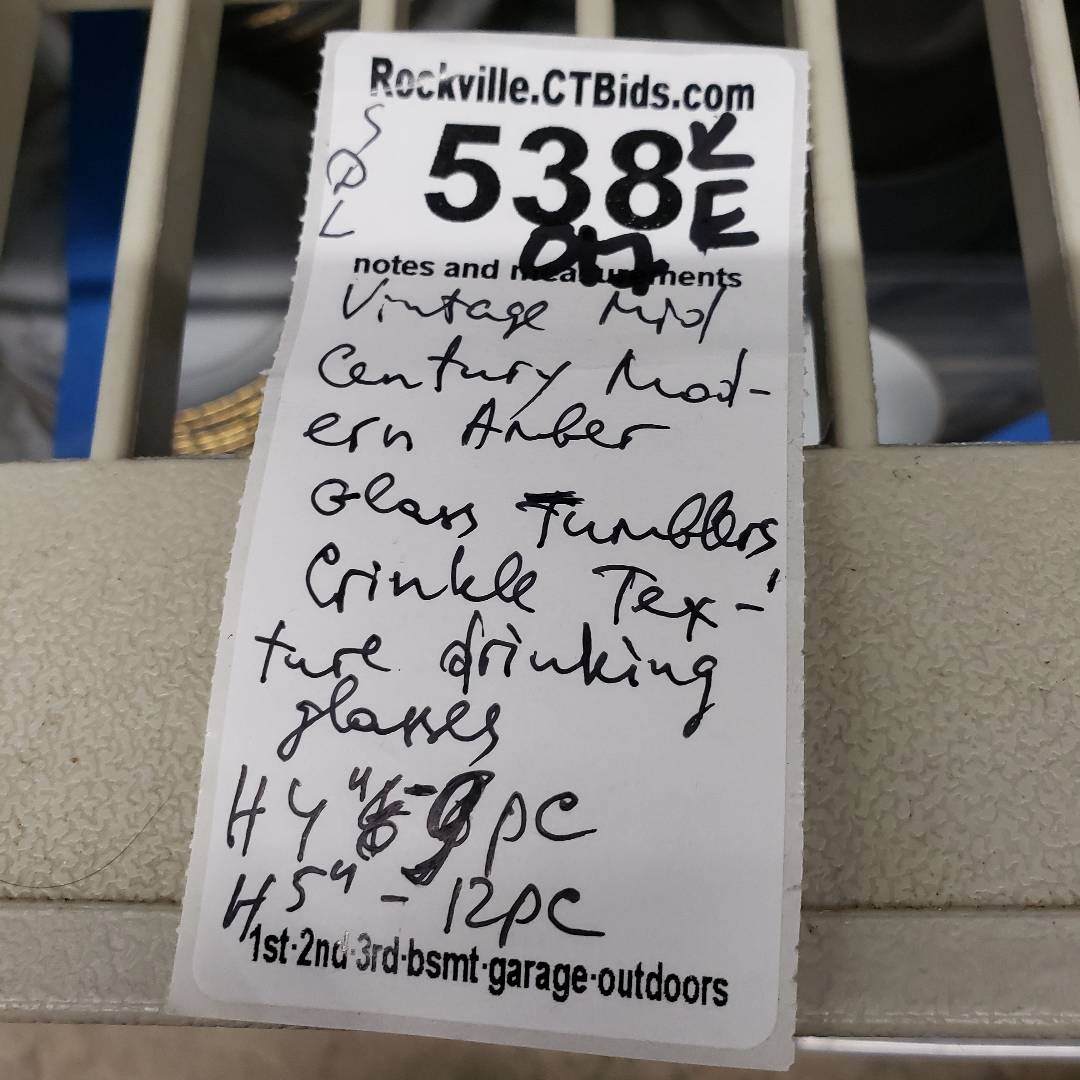 Rockville.CTBids.com
538
notes and measurements
Vintage Mid
Century Mod-
ern Amber
Glass Tumblers
Crinkle Tex-
ture drinking
glasses
H 4" - 9 pc
H 5" - 12 pc
1st·2nd·3rd·bsmt·garage·outdoors